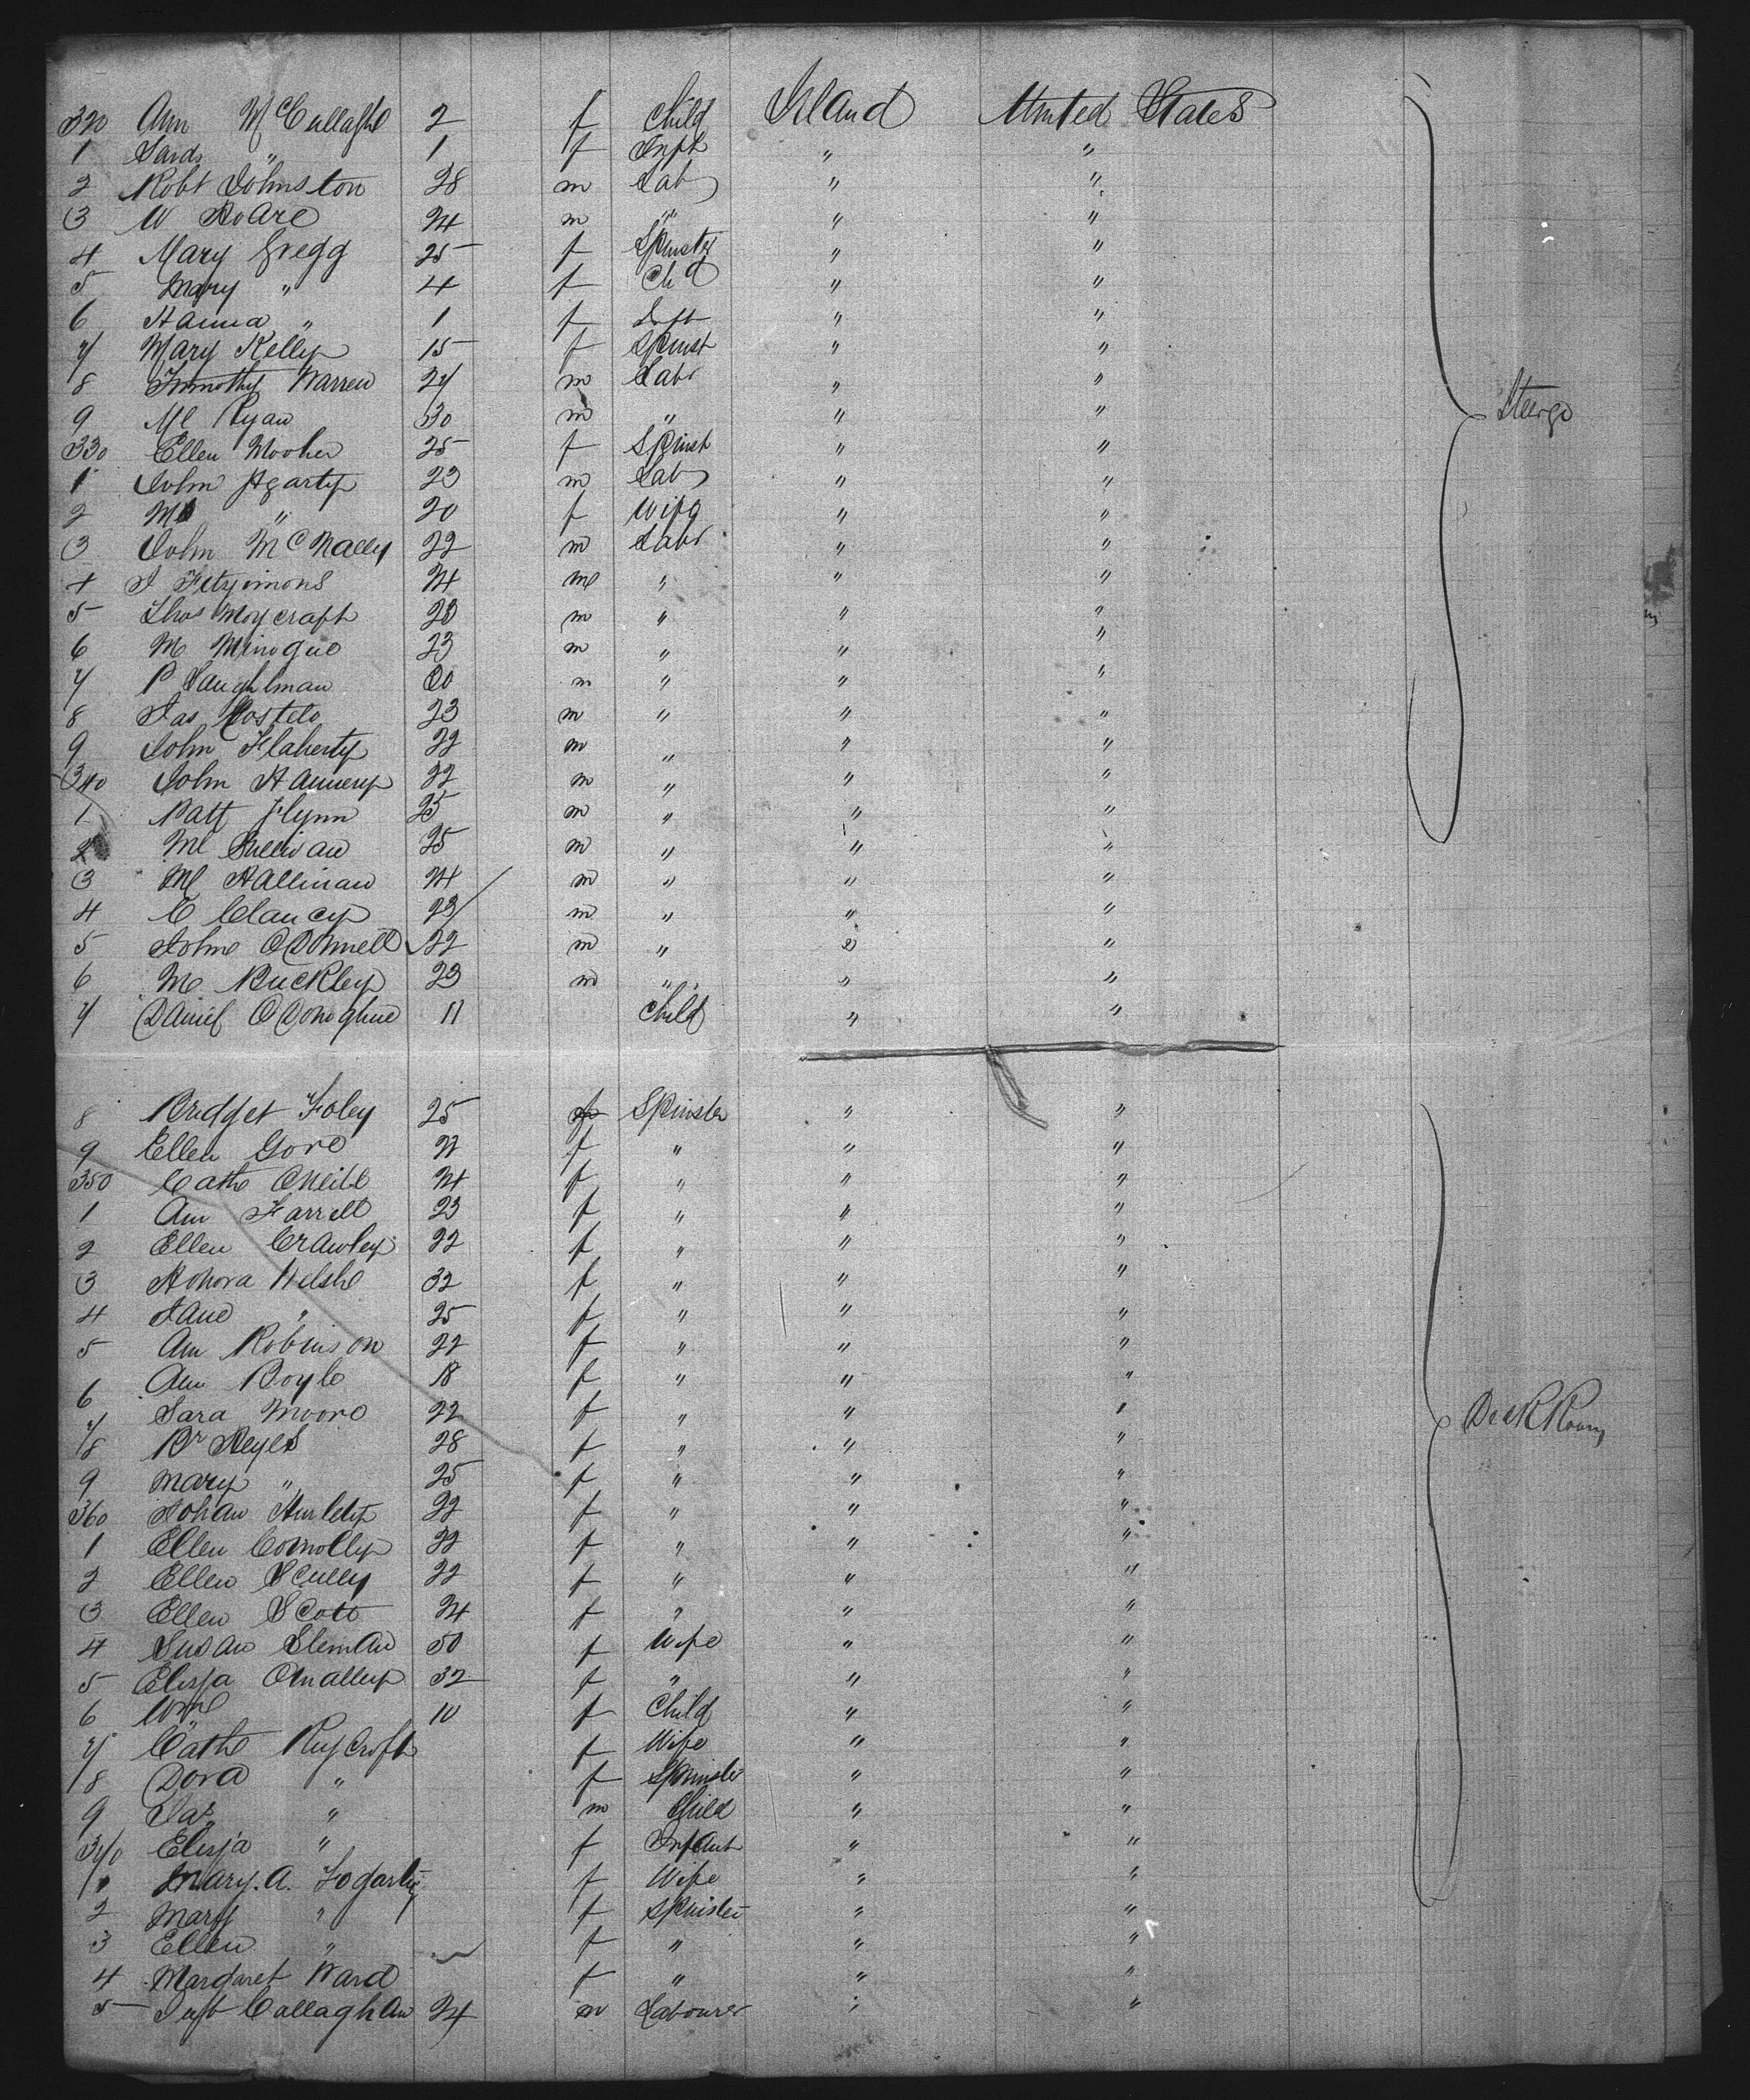 320 Ann McCullagh 2 f Child Irland United States
1 " 1 f Inft " "
2 Robt Johnston 28 m Lab " "
3 W Hoare 24 m " " "
4 Mary Gregg 25 f Spinster " "
5 Mary " 4 f Chd " "
6 Hanna " 1 f Inft " "
7 Mary Kelly 15 f Spinst " "
8 Timothy Warren 27 m Labr " "
9 Ml Ryan 30 m " " " Steerge
330 Ellen 25 f Spinst " "
1 John 23 m Lab " "
2 " 20 f Wife " "
3 John McNally 22 m Labr " "
4 J Fitzimons 24 m " " "
5 Thos Moycraft 20 m " " "
6 M Minogue 23 m " " "
7 P m " " "
8 Jas Costelo 23 m " " "
9 John Flaherty 22 m " " "
340 John 22 m " " "
1 Patt Flynn 25 m " " "
2 Ml Sullivan 25 m " " "
3 Ml Hallinan 24 m " " "
4 C Clancy 23 m " " "
5 John ODonnell 22 m " " "
6 M Buckley 23 m " " "
7 Daniel ODonoghue 11 Child " "
8 Bridget Foley 25 f Spinster " "
9 Ellen Gore 22 f " " "
350 Cath ONeill 24 f " " "
1 Ann Farrell 23 f " " "
2 Ellen Crawley 22 f " " "
3 Honora Welsh 32 f " " "
4 Jane " 25 f " " "
5 Ann Robinson 22 f " " "
6 Ann Boyle 18 f " " "
7 Sara Moore 22 f " " " Deck Room
8 Br Keyes 28 f " " "
9 Mary " 25 f " " "
360 Johan Hurley 22 f " " "
1 Ellen Connolly 22 f " " "
2 Ellen Scully 22 f " " "
3 Ellen Scott 24 f " " "
4 Susan Sleman 50 f Wife " "
5 Elisja Omalley 32 f " " "
6 Wm " 10 f Child " "
7 Cath Ruycroft f Wife " "
8 Dora " f Spinster " "
9 Jas " m Child " "
370 Elisja " f Infant " "
1 Mary. A. Fogarty f Wife " "
2 Mary " f Spinster " "
3 Ellen " f " " "
4 Margaret Ward f " " "
5 Callaghan 24 m Labourer " "